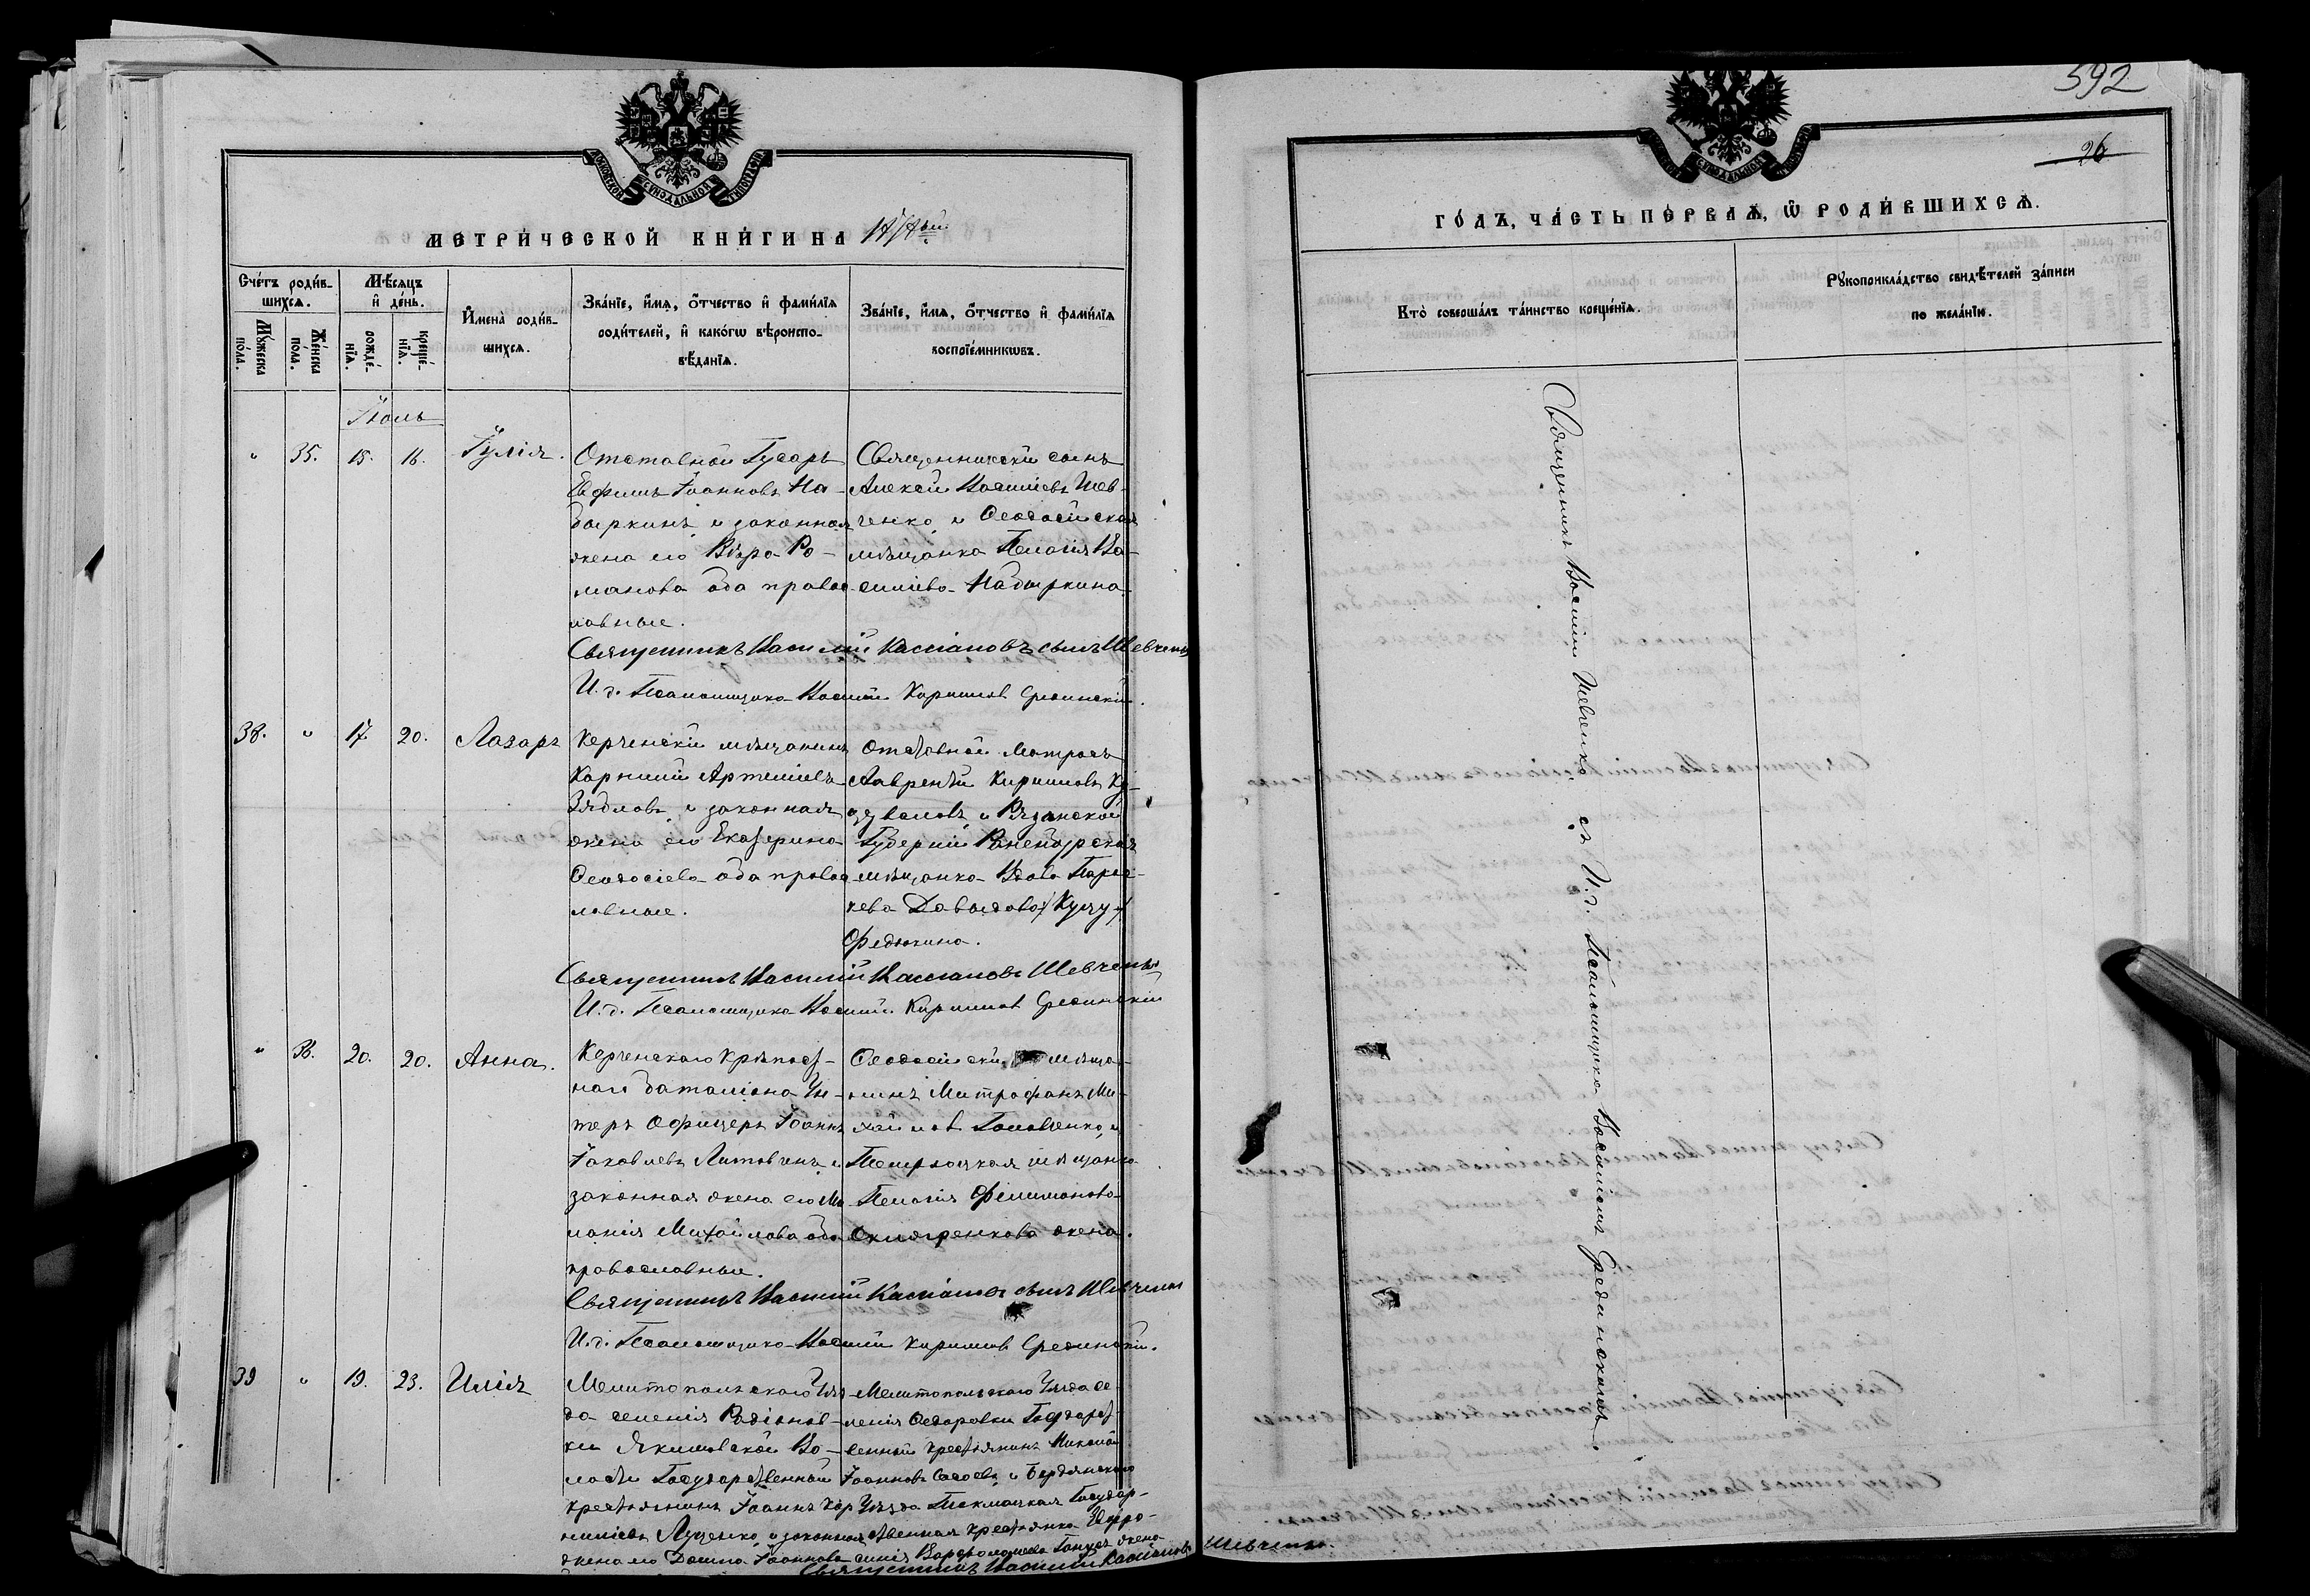 МОСКОВСКОЙ СУНОДАЛЬНОЙ ТИПОГРАФІИ
МЕТРИ́ЧЕСКОЙ КНИ́ГИ НА
Сче́тъ роди́вшихсѧ.
Мꙋ́жеска по́ла.
Же́нска по́ла.
Мѣ́сѧцъ и҆ де́нь.
рожде́нїѧ.
креще́нїѧ.
И҆мена̀ роди́вшихсѧ.
Зва́нїе, и҆́мѧ, ѻ҆́тчество и҆ фами́лїѧ
роди́телей, и҆ како́гѡ вѣроиспо-
вѣ́данїѧ.
Зва́нїе, и҆́мѧ, ѻ҆́тчество и҆ фами́лїѧ
воспрїе́мникѡвъ.
Іюль
" 35. 15. 16. Іулія.
Отставной Гусаръ
Евфимъ Іоанновъ На-
дыркинъ и законная
жена его Вѣра Ро-
манова оба право-
славные.
Священническій сынъ
Алексій Васильевъ Шев-
ченко, и Ѳеодосійская
мѣщанка Пелагія Ва-
силіева Надыркина.
Священникъ Василій Кассіановъ сынъ Шевченко
И. д. Псаломщика Василій Кирилловъ Срединскій.
38. " 17. 20. Лазарь
Керченскій мѣщанинъ
Корнилій Артеміевъ
Зябловъ, и законная
жена его Екатерина
Ѳеодосіева оба право-
славные.
Отставной Матросъ
Лаврентій Кирилловъ
и Рязанской
Губерніи Раненбургская
мѣщанка Вдова Параске-
кева Давыдова
Федюкина.
Священникъ Василій Кассіановъ Шевченко
И. д. Псаломщика Василій Кирилловъ Срединскій
" 36. 20. 20. Анна.
Керченскаго Крѣпост-
наго баталіона Ун-
теръ Офицеръ Іоаннъ
Іаковлевъ Литовченъ и
законная жена его Ме-
ланія Михайлова оба
православные.
Ѳеодосійскій мѣща-
нинъ Митрофанъ Ми-
хайловъ Головченко, и
мѣщанка
Пелагія Филимонова
жена.
Священникъ Василій Кассіановъ сынъ Шевченко
И. д. Псаломщика Василій Кирилловъ Срединскій.
39 " 19. 23. Илія
Мелитопольскаго Уѣз-
да селенія Родіонов-
ки Якимовской Во-
лости Государственный
крестьянинъ Іоаннъ Кор-
ниліевъ Луценко, и законная
жена его Домна Іоаннова
Мелитопольскаго Уѣзда се-
ленія Ѳедоровки Государст-
венный крестьянинъ Николай
Іоанновъ Сысоевъ, и Бердянскаго
Уѣзда Токмацкая Государ-
ственная крестьянка Евфро-
синія Варфоломеева жена
Священникъ Василій Кассіановъ Шевченко.
592
26
МОСКОВСКОЙ СУНОДАЛЬНОЙ ТИПОГРАФІИ
ГО́ДЪ, ЧА́СТЬ ПЕ́РВАѦ, Ѡ҆ РОДИ́ВШИХСѦ.
Кто̀ соверша́лъ та́инство креще́нїѧ.
Рꙋкоприкла́дство свидѣ́телей за́писи
по жела́нїю.
Священникъ Василій Шевченко, съ И. д. Псаломщика Василіемъ Срединскимъ.